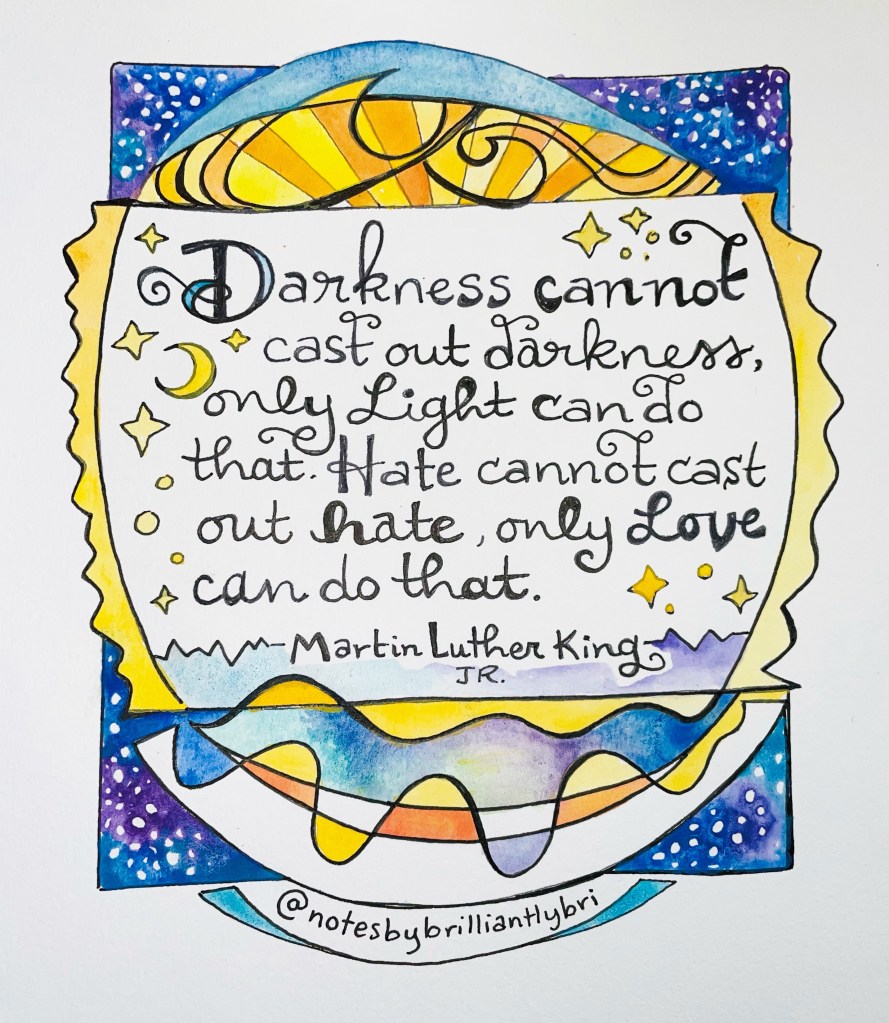 Darkness cannot
cast out darkness,
only Light can do
that. Hate cannot cast
out hate, only Love
can do that.
-Martin Luther King
JR.
@notesbybrilliantlybri